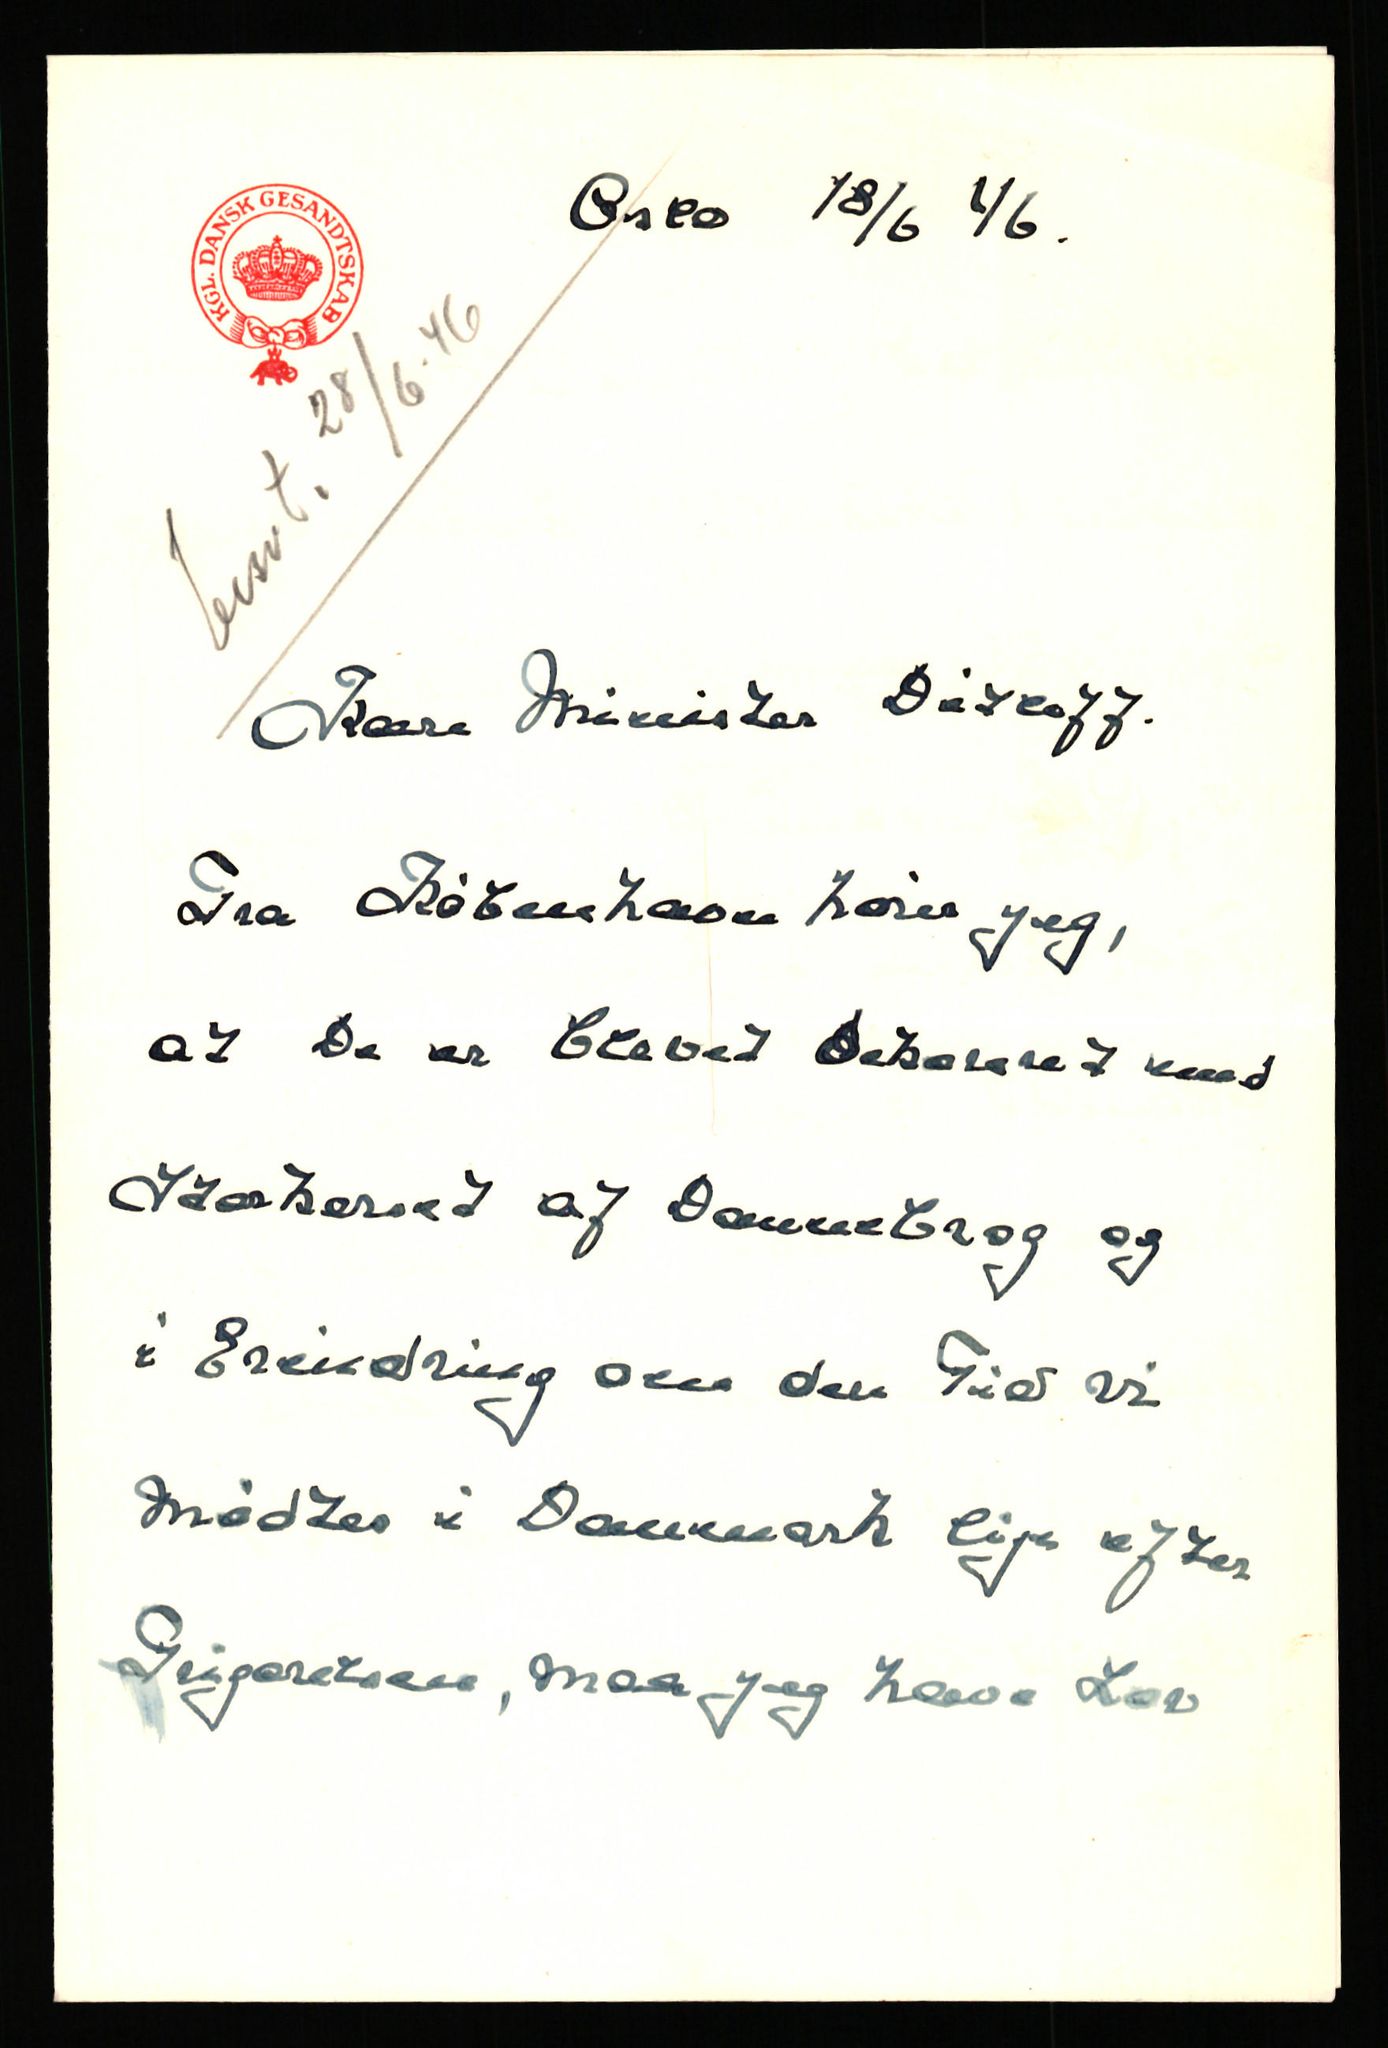 KGL. DANSK GESANDTSKAB
Oslo 18/6 46.
besv t. 28/6.46
Kære Minister Ditleff.
Fra København hører jeg,
at De er blevet Dekoreret med
Storkorset af Dannebrog og
i Erindring om den Tid vi
mødtes i Danmark lige efter
Frigørelsen, maa jeg have Lov